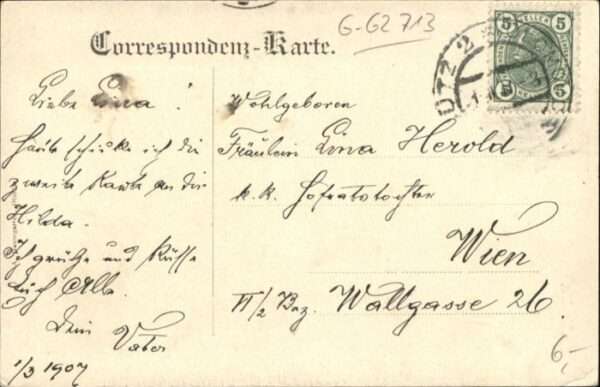 G-G2 713
Correspondenz-Karte.
5 HELLER 5
5 5
2
Liebe Lina!
Heute schicke ich die
zweite Karte an die
Hilda.
Ich grüße und Küsse
Euch Alle.
Dein Vater
1/3 1907
Wohlgeboren
Fräulein Lina Herold
k.k. Hofratstochter
Wien
VI/2 Bez. Wallgasse 26.
6,-